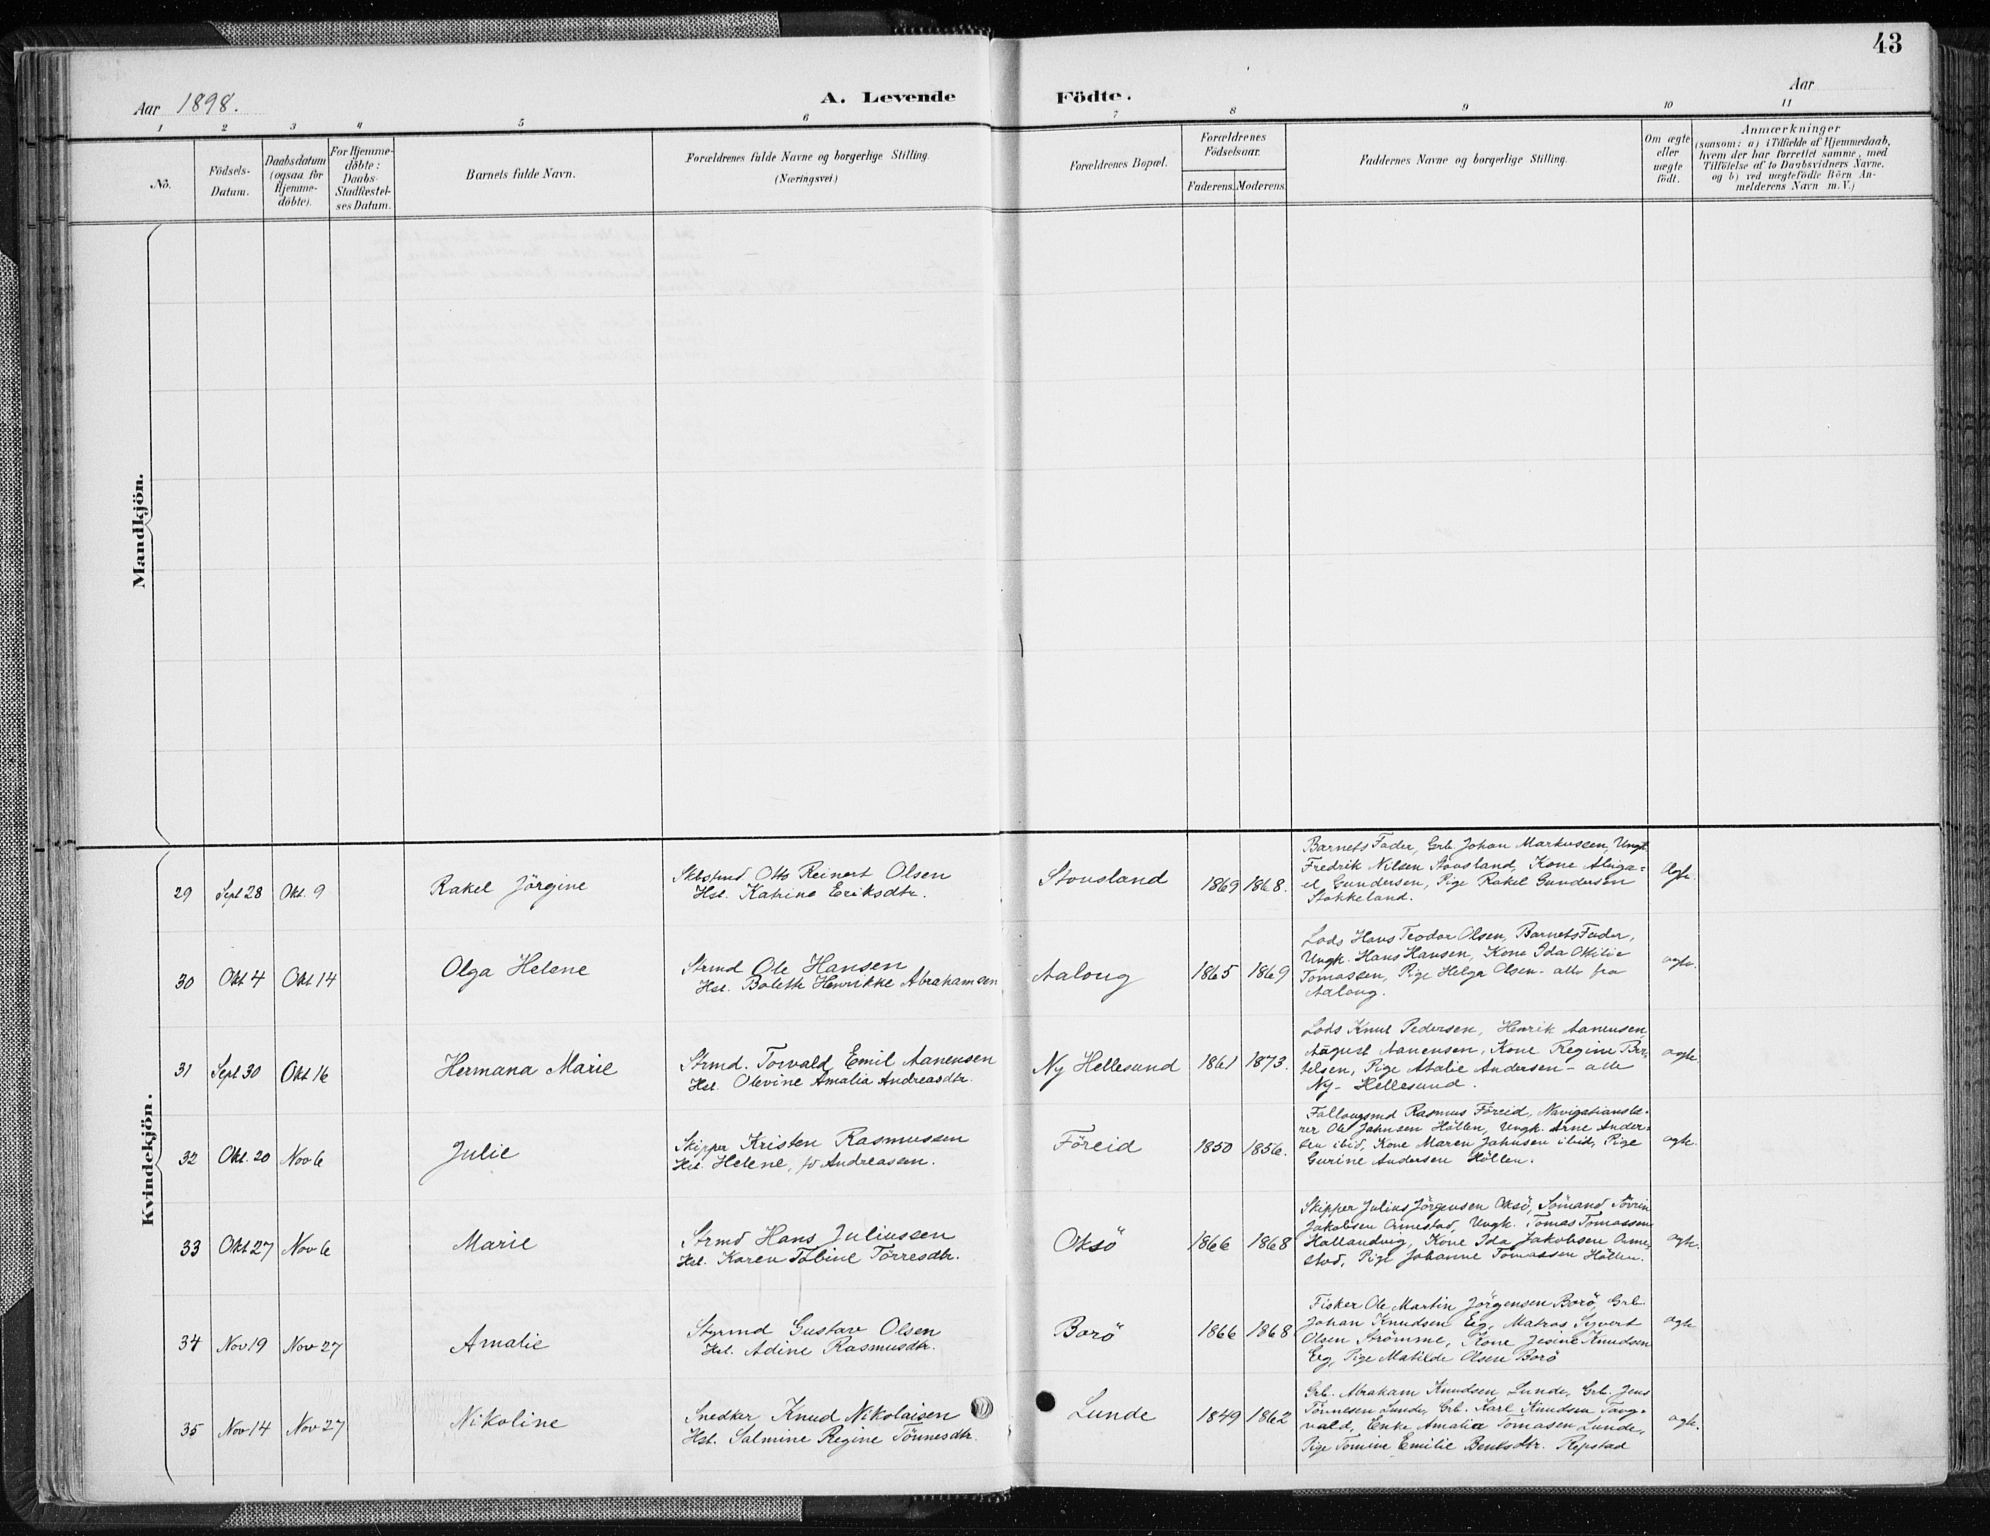 43
Aar 1898.
A. Levende Födte.
Aar
1 2 3 4 5 6 7 8 9 10 11
No.
Födsels-
Datum.
Daabsdatum
(ogsaa for
Hjemme-
döbte).
For Hjemme-
döbte:
Daabs-
Stadfæstel-
ses Datum.
Barnets fulde Navn.
Forældrenes fulde Navne og borgerlige Stilling.
(Næringsvei.)
Forældrenes Bopæl.
Forældrenes
Födselsaar.
Faderens. Moderens.
Faddernes Navne og borgerlige Stilling.
Om ægte
eller
uægte
födt.
Anmærkninger
(saasom: a) i Tilfælde af Hjemmedaab,
hvem der har forrettet samme, med
Tilföielse af to Daabsvidners Navne.
og b) ved uægtefödte Börn An-
melderens Navn m.V.)
Mandkjön.
Kvindekjön.
29 Sept 28 Okt. 9 Rakel Jörgine
Otto Reinert Olsen
Hst. Katrine Eriksdtr.
Stousland 1869 1868.
Barnets Fader, Grb. Johan Markussen, Ungk.
Fredrik Nilsen Stousland, Kone Abiga=
el Gundersen, Pige Rakel Gundersen
Stokkeland.
ægte.
30 Okt 4 Okt 14 Olga Helene
Strmd Ole Hansen
Hst. Bolette Henrikke Abrahamsen
Aaloug 1865 1869
Lods Hans Teodor Olsen, Barnets Fader,
Ungk. Hans Hansen, Kone Ida Otilie
Tomassen, Pige Helga Olsen - alle fra
Aaloug.
ægte.
31 Sept 30 Okt 16 Hermana Marie
Strmd. Torvald Emil Aanensen
Hst. Olevine Amalia Andreasdtr.
Ny Hellesund 1861 1873.
Lods Knut Pedersen, Henrik Aanensen
August Aanensen, Kone Regine Ber-
telsen, Pige Atalie Andersen - alle
Ny-Hellesund.
ægte.
32 Okt. 20 Nov 6 Julie
Skipper Kristen Rasmussen
Hst. Helene, f. Andreassen.
Föreid 1850 1856.
Rasmus Föreid, Navigationslæ-
rer Ole Jahnsen Höllen, Ungk. Arne Ander-
sen ibid, Kone Maren Jahnsen ibid, Pige
Gurine Andersen Höllen.
ægte.
33 Okt 27 Nov 6 Marie
Strmd Hans Juliussen
Hst. Karen Tobine Törresdtr.
Oksö 1866 1868
Skipper Julius Jörgensen Oksö, Sömand Sövrin
Jakobsen Omestad, Ungk. Tomas Tomassen
Kallandvig, Kone Ida Jakobsen Ome-
stad, Pige Johanne Tomassen Höllen.
ægte.
34 Nov 19 Nov 27 Amalie
Styrmd Gustav Olsen
Hst. Adine Rasmusdtr.
Borö 1866 1868
Fisker Ole Martin Jörgensen Borö, Grb.
Johan Knudsen Eeg, Matros Syvert
Olsen Strömme, Kone Jesine Knudsen
Eeg, Pige Matilde Olsen Borö
ægte
35 Nov 14 Nov 27 Nikoline
Snedker Knud Nikolaisen
Hst. Salmine Regine Tönnesdtr.
Lunde 1849 1862
Grb. Abraham Knudsen Lunde, Grb. Jens
Tönnesen Lunde, Grb. Karl Knudsen Tang-
vald, Enke Amalia Tomasen Lunde,
Pige Tomine Emilie Bentsdtr. Repstad
ægte.